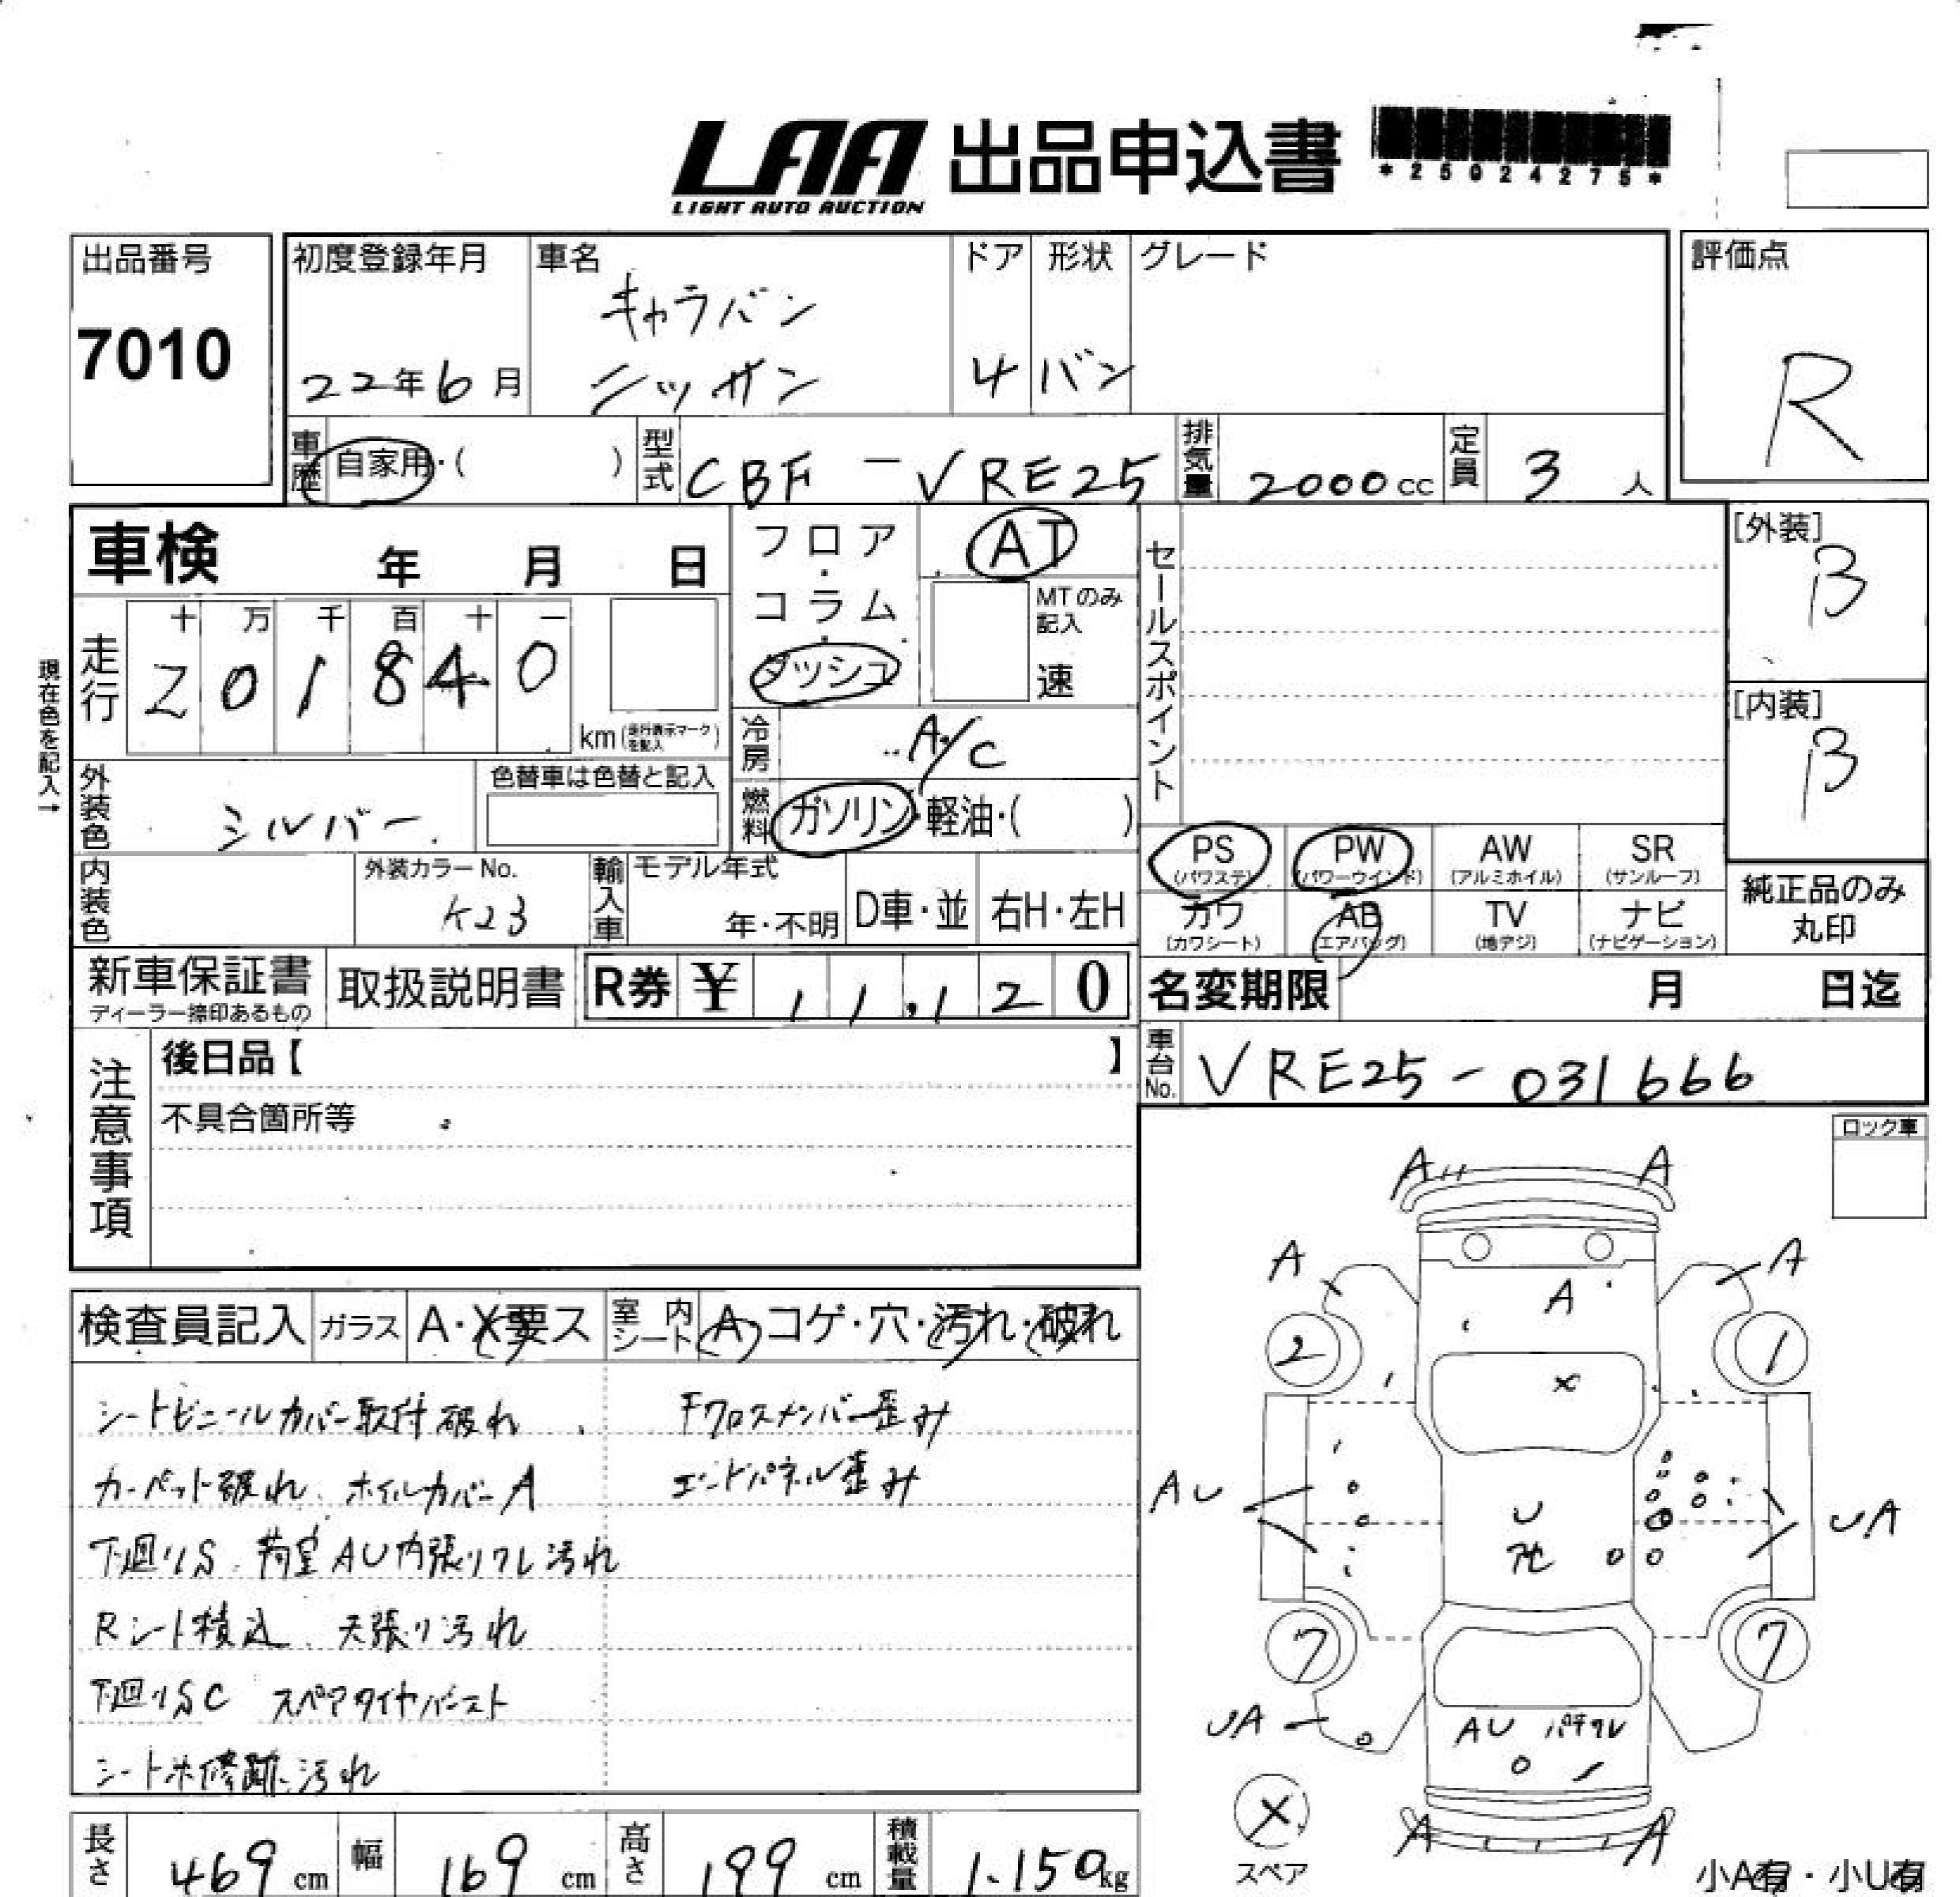 LAA 出品申込書
LIGHT AUTO AUCTION
*25024275*
出品番号
7010
初度登録年月
22年6月
車名
キャラバン
ニッサン
ドア
4
形状
バン
グレード
評価点
R
車歴
自家用・( )
型式
CBF-VRE25
排気量
2000cc
定員
3人
車検 年 月 日
走行
十 万 千 百 十 一
2 0 1 8 4 0
km(走行表示マークを記入)
現在色を記入→
フロア・コラム・ダッシュ
AT
MTのみ記入
速
冷房
A/C
燃料
ガソリン・軽油・( )
セールスポイント
[外装]
B
[内装]
B
外装色
シルバー
色替車は色替と記入
内装色
外装カラーNo.
K23
輸入車
モデル年式
年・不明
D車・並
右H・左H
PS
(パワステ)
PW
(パワーウインド)
AW
(アルミホイル)
SR
(サンルーフ)
カワ
(カワシート)
AB
(エアバッグ)
TV
(地デジ)
ナビ
(ナビゲーション)
純正品のみ
丸印
新車保証書
ディーラー捺印あるもの
取扱説明書
R券 ¥ 11,120
名変期限 月 日迄
車台No.
VRE25-031666
注意事項
後日品【 】
不具合箇所等
ロック車
検査員記入
ガラス
A・X要ス
室内シート
A コゲ・穴・汚れ・破れ
シートビニールカバー取付破れ
カーペット破れ、ホイルカバーA
下廻りS、荷室AU内張リワレ汚れ
Rシート積込、天張り汚れ
下廻りSC スペアタイヤバースト
汚れ
Fクロスメンバー歪み
エンドパネル歪み
A A
A A
A
2 1
X
AU
U
UA
7 7
UA
AU
A A
X
スペア
小A有・小U有
長さ
469cm
幅
169cm
高さ
199cm
積載量
1.150kg